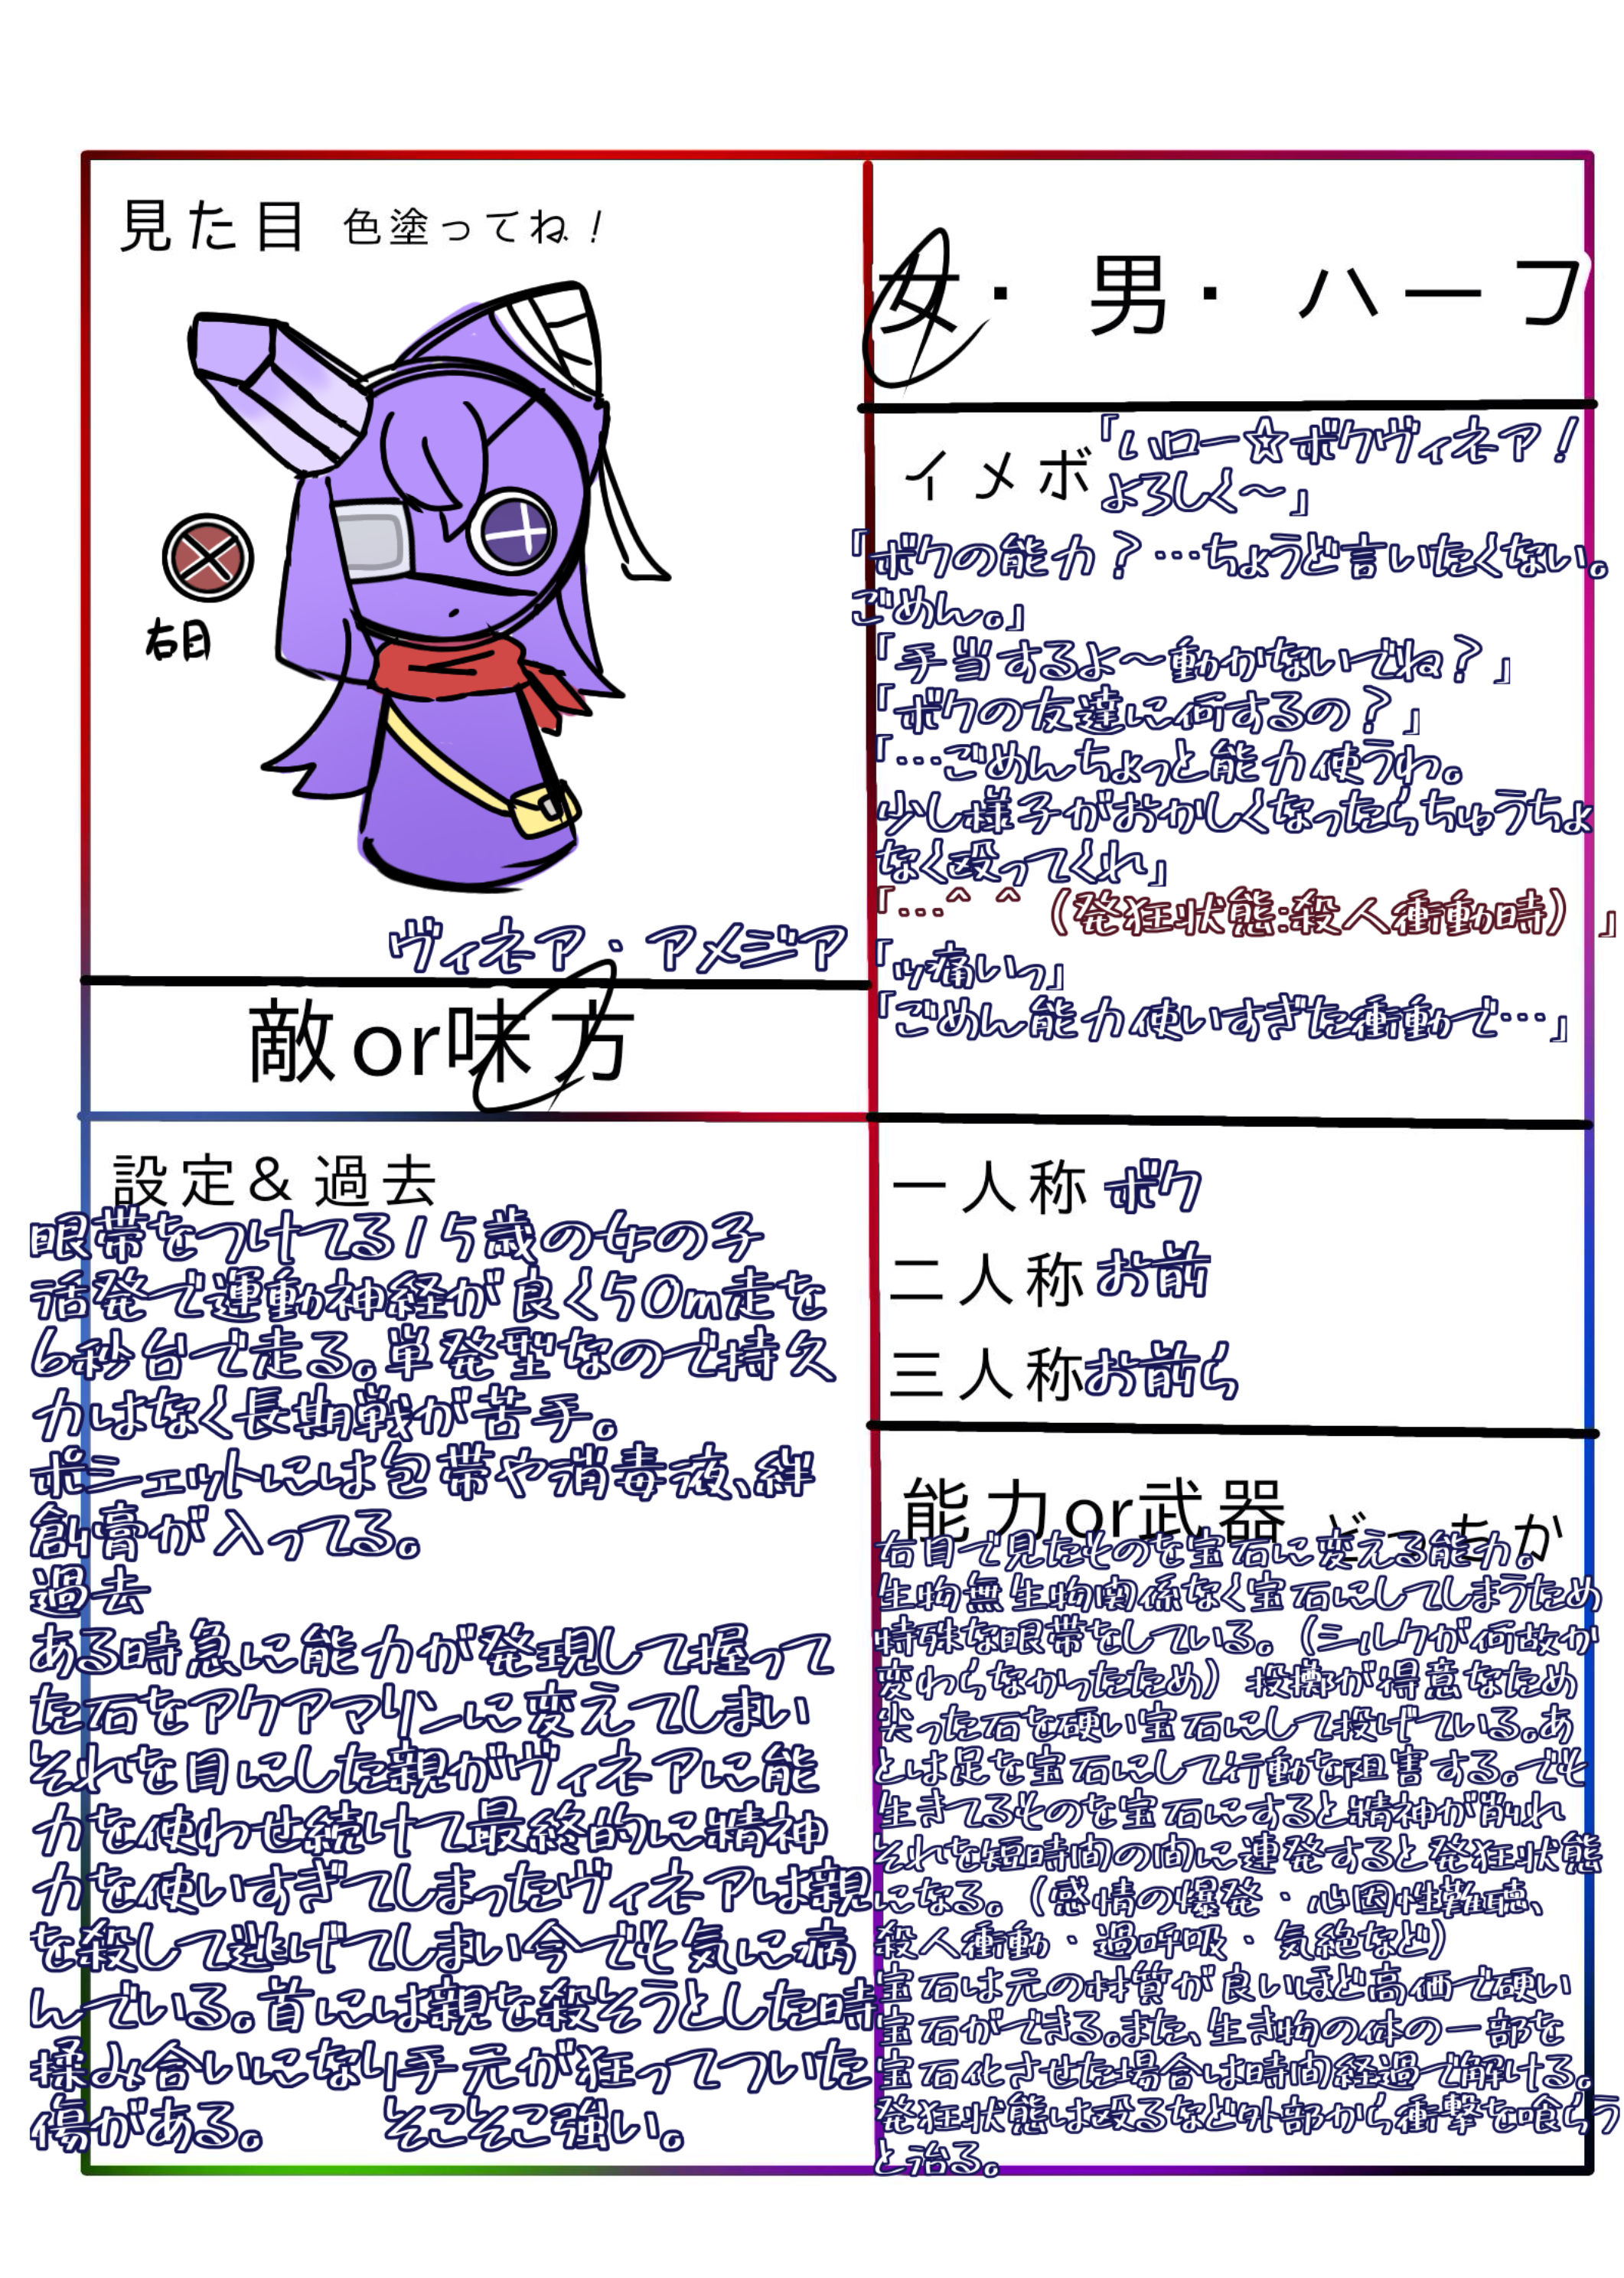 見た目 色塗ってね！
右目
ヴィネア・アメジア
敵or味方
女・男・ハーフ
イメボ
「いロー☆ボクヴィネア！
よろしく〜」
「ボクの能力？…ちょうど言いたくない。
ごめん。」
「手当するよ〜動かないでね？」
「ボクの友達に何するの？」
「…ごめんちょっと能力使うわ。
少し様子がおかしくなったらちゅうちょ
なく殴ってくれ」
「…^ ^（発狂状態:殺人衝動時）」
「ッ痛いっ」
「ごめん能力使いすぎた衝動で…」
設定& 過去
眼帯をつけてる15歳の女の子
活発で運動神経が良く50m走を
6秒台で走る。単発型なので持久
力はなく長期戦が苦手。
ポシェットには包帯や消毒液、絆
創膏が入ってる。
過去
ある時急に能力が発現して握って
た石をアクアマリンに変えてしまい
それを目にした親がヴィネアに能
力を使わせ続けて最終的に精神
力を使いすぎてしまったヴィネアは親
を殺して逃げてしまい今でも気に病
んでいる。首には親を殺そうとした時
揉み合いになり手元が狂ってついた
傷がある。 そこそこ強い。
一人称 ボク
二人称 お前
三人称 お前ら
能力or武器 どっちか
右目で見たものを宝石に変える能力。
生物無生物関係なく宝石にしてしまうため
特殊な眼帯をしている。（シルクが何故か
変わらなかったため）投擲が得意なため
尖った石を硬い宝石にして投げている。あ
とは足を宝石にして行動を阻害する。でも
生きてるものを宝石にすると精神が削れ
それを短時間の間に連発すると発狂状態
になる。（感情の爆発・心因性難聴、
殺人衝動・過呼吸・気絶など）
宝石は元の材質が良いほど高価で硬い
宝石ができる。また、生き物の体の一部を
宝石化させた場合は時間経過で解ける。
発狂状態は殴るなど外部から衝撃を喰らう
と治る。